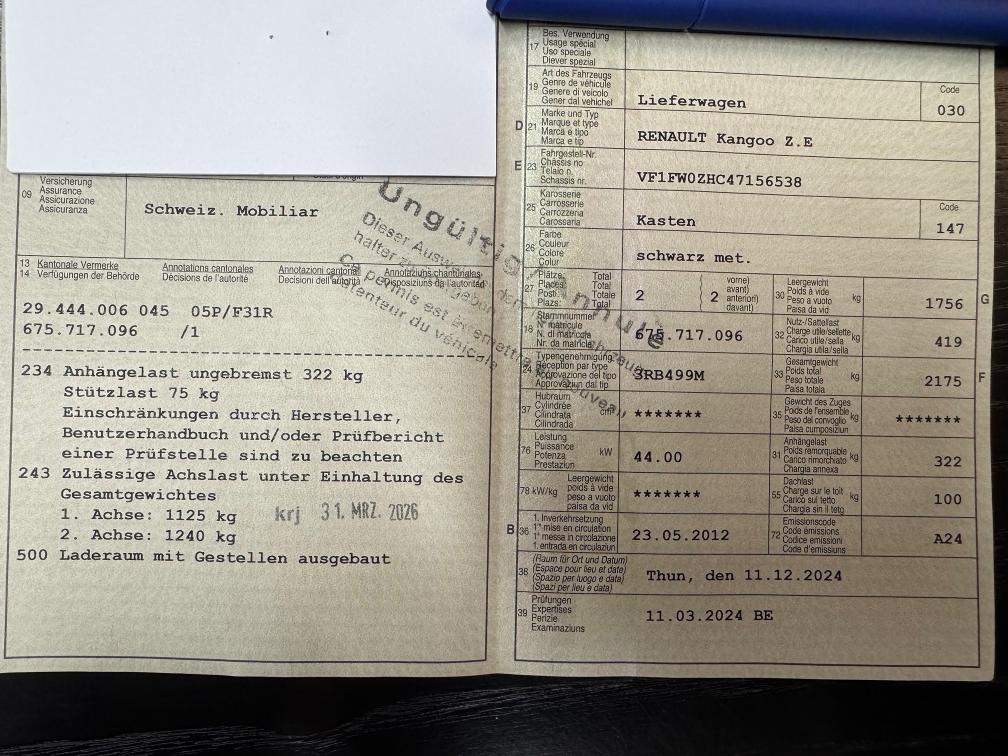 09 Versicherung
Assurance
Assicurazione
Assicuranza
Schweiz. Mobiliar
13 Kantonale Vermerke Annotations cantonales Annotazioni cantonali Annotaziuns chantunalas
14 Verfügungen der Behörde Décisions de l'autorité Decisioni dell'autorità Disposiziuns da l'autoritad
29.444.006 045 05P/F31R
675.717.096 /1
234 Anhängelast ungebremst 322 kg
Stützlast 75 kg
Einschränkungen durch Hersteller,
Benutzerhandbuch und/oder Prüfbericht
einer Prüfstelle sind zu beachten
243 Zulässige Achslast unter Einhaltung des
Gesamtgewichtes
1. Achse: 1125 kg krj 31. MRZ. 2026
2. Achse: 1240 kg
500 Laderaum mit Gestellen ausgebaut
Ungültig Annulé
Dieser Ausweis
halter zu
Ce permis est à remettre
détenteur du véhicule
nouveau
17 Bes. Verwendung
Usage spécial
Uso speciale
Diever spezial
19 Art des Fahrzeugs
Genre de véhicule
Genere di veicolo
Gener dal vehichel
Lieferwagen
Code
030
D 21 Marke und Typ
Marque et type
Marca e tipo
Marca e tip
RENAULT Kangoo Z.E
E 23 Fahrgestell-Nr.
Châssis no
Telaio n.
Schassis nr.
VF1FW0ZHC47156538
25 Karosserie
Carrosserie
Carrozzeria
Carossaria
Kasten
Code
147
26 Farbe
Couleur
Colore
Colur
schwarz met.
27 Plätze: Total
Places: Total
Posti: Totale
Plazs: Total
2
2
vorne)
avant)
anteriori)
davant)
30 Leergewicht
Poids à vide
Peso a vuoto
Paisa da vid
kg
1756
G
18 Stammnummer
N° matricule
N. di matricola
Nr. da matricla
675.717.096
32 Nutz-/Sattellast
Charge utile/sellette
Carico utile/sella
Chargia utila/sella
kg
419
24 Typengenehmigung
Réception par type
Approvazione del tipo
Approvaziun dal tip
3RB499M
33 Gesamtgewicht
Poids total
Peso totale
Paisa totala
kg
2175
F
37 Hubraum
Cylindrée
Cilindrata
Cilindrada
cm³
*******
35 Gewicht des Zuges
Poids de l'ensemble
Peso del convoglio
Paisa cumposiziun
kg
*******
76 Leistung
Puissance
Potenza
Prestaziun
kW
44.00
31 Anhängelast
Poids remorquable
Carico rimorchiato
Chargia annexa
kg
322
78 kW/kg
Leergewicht
poids à vide
peso a vuoto
paisa da vid
*******
55 Dachlast
Charge sur le toit
Carico sul tetto
Chargia sin il tetg
kg
100
B 36 1. Inverkehrsetzung
1re mise en circulation
1a messa in circolazione
1. entrada en circulaziun
23.05.2012
72 Emissionscode
Code émissions
Codice emissioni
Code d'emissiuns
A24
38 (Raum für Ort und Datum)
(Espace pour lieu et date)
(Spazio per luogo e data)
(Spazi per lieu e data)
Thun, den 11.12.2024
39 Prüfungen
Expertises
Perizie
Examinaziuns
11.03.2024 BE